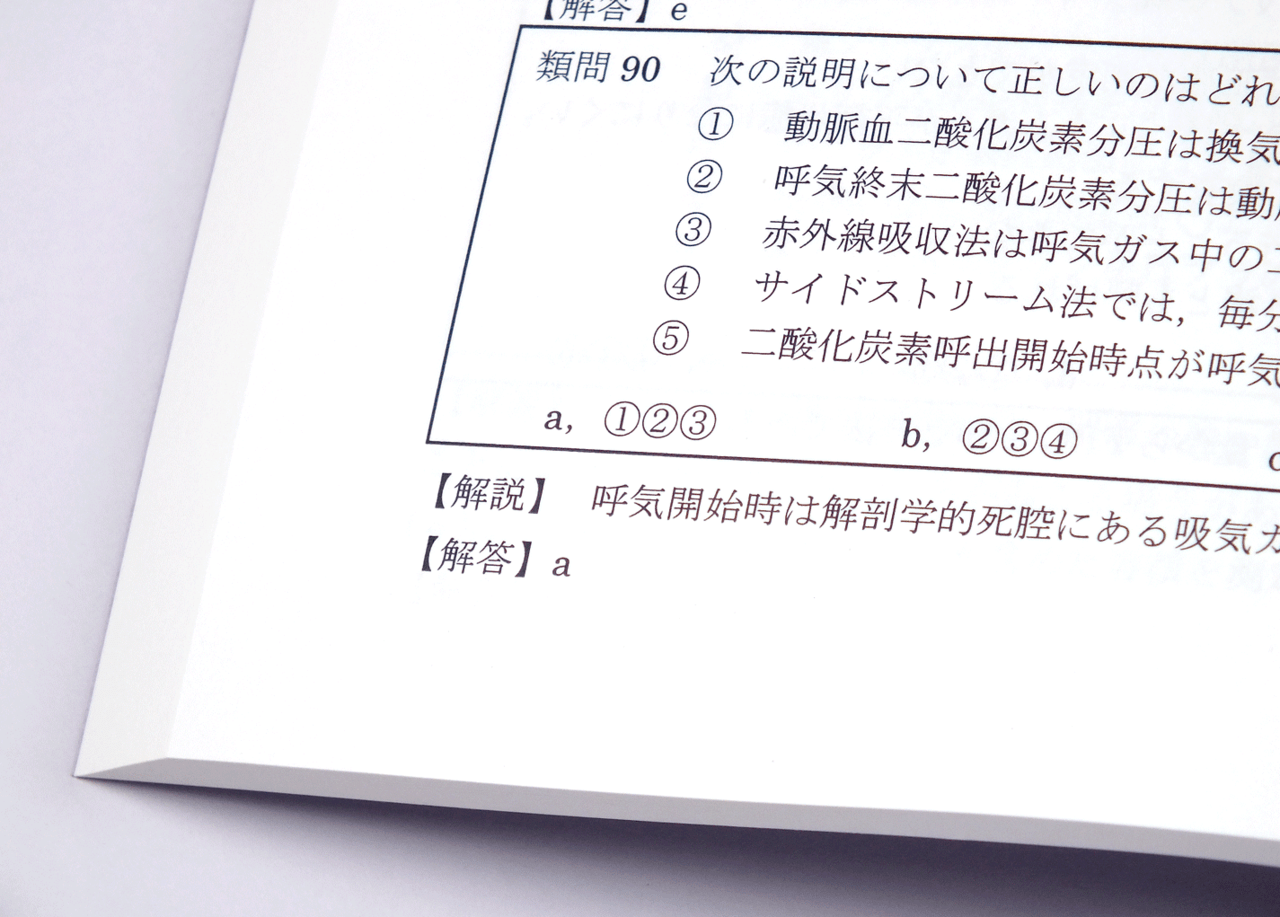 【解答】e
類問 90 次の説明について正しいのはどれ
① 動脈血二酸化炭素分圧は換気
② 呼気終末二酸化炭素分圧は動
③ 赤外線吸収法は呼気ガス中の
④ サイドストリーム法では，毎分
⑤ 二酸化炭素呼出開始時点が呼気
a，①②③ b，②③④
【解説】 呼気開始時は解剖学的死腔にある吸気ガ
【解答】a